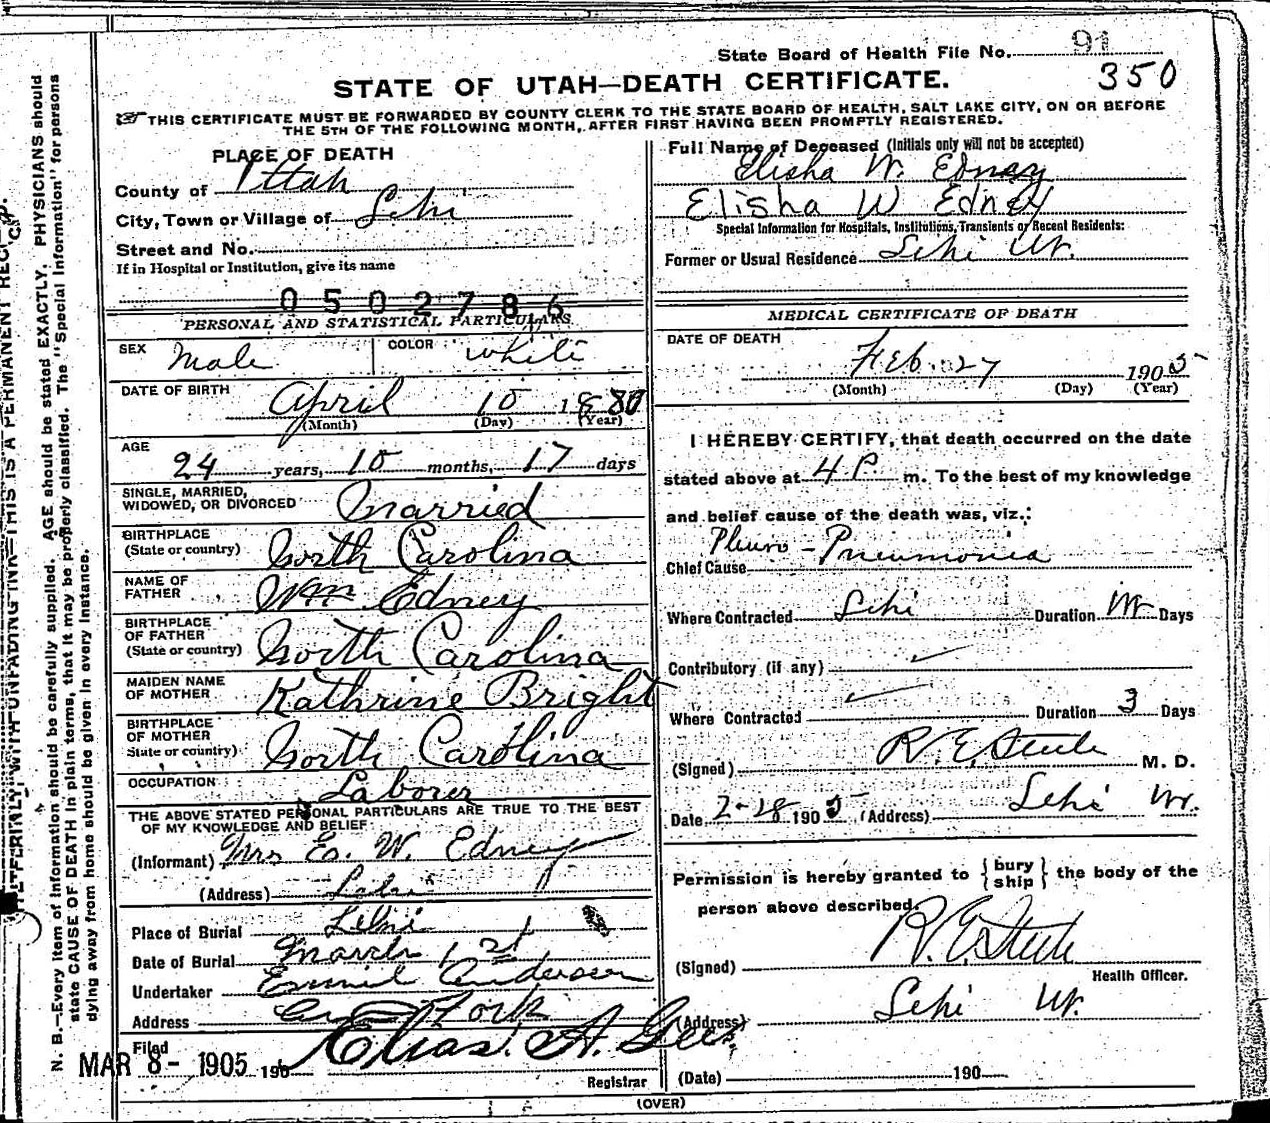 State Board of Health File No. 91
350
STATE OF UTAH—DEATH CERTIFICATE.
THIS CERTIFICATE MUST BE FORWARDED BY COUNTY CLERK TO THE STATE BOARD OF HEALTH, SALT LAKE CITY, ON OR BEFORE
THE 5TH OF THE FOLLOWING MONTH, AFTER FIRST HAVING BEEN PROMPTLY REGISTERED.
PLACE OF DEATH
County of Uttah
City, Town or Village of Lehi
Street and No.
If in Hospital or Institution, give its name
0502786
PERSONAL AND STATISTICAL PARTICULARS
SEX Male COLOR White
DATE OF BIRTH April 10 1880
(Month) (Day) (Year)
AGE 24 years, 10 months, 17 days
SINGLE, MARRIED,
WIDOWED, OR DIVORCED Married
BIRTHPLACE
(State or country) North Carolina
NAME OF
FATHER Wm Edney
BIRTHPLACE
OF FATHER
(State or country) North Carolina
MAIDEN NAME
OF MOTHER Kathrine Bright
BIRTHPLACE
OF MOTHER
State or country) North Carolina
OCCUPATION Laborer
THE ABOVE STATED PERSONAL PARTICULARS ARE TRUE TO THE BEST
OF MY KNOWLEDGE AND BELIEF
(Informant) Mrs E. W. Edney
(Address) Lehi
Place of Burial Lehi
Date of Burial March 1st
Undertaker Emil Anderson
Address Am Fork
Filed
MAR 8- 1905 190
A. Gees.
Registrar
Full Name of Deceased (Initials only will not be accepted)
Elisha W. Edney
Elisha W Edney
Special Information for Hospitals, Institutions, Transients or Recent Residents:
Former or Usual Residence Lehi Ut.
MEDICAL CERTIFICATE OF DEATH
DATE OF DEATH
Feb. 27 1905
(Month) (Day) (Year)
I HEREBY CERTIFY, that death occurred on the date
stated above at 4 P m. To the best of my knowledge
and belief cause of the death was, viz.:
Chief Cause Pleuro-Pneumonia
Where Contracted Lehi Duration Days
Contributory (if any)
Where Contracted Duration 3 Days
(Signed) R. E. Steele M. D.
Date 2-28 1905 (Address) Lehi Ut.
Permission is hereby granted to { bury
ship } the body of the
person above described.
(Signed) R. E. Steele
Health Officer.
(Address) Lehi Ut.
(Date) 190
(OVER)
N. B.—Every item of information should be carefully supplied. AGE should be stated EXACTLY. PHYSICIANS should
state CAUSE OF DEATH in plain terms, that it may be properly classified. The "Special Information" for persons
dying away from home should be given in every instance.
WITH UNFADING INK—THIS IS A PERMANENT